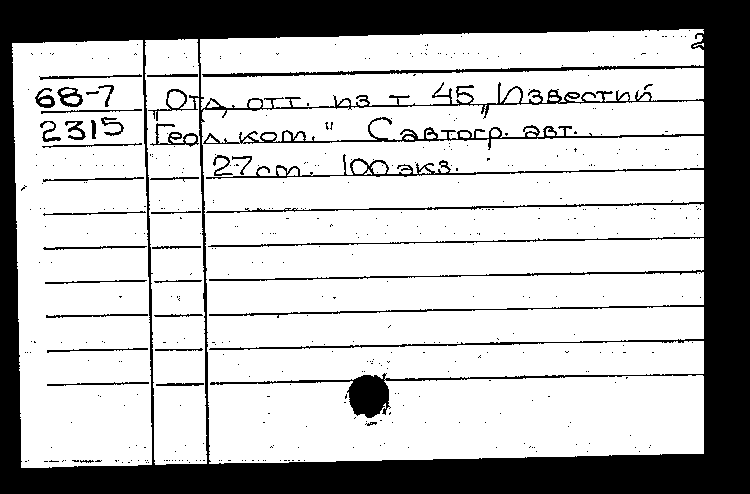 2
68-7 Отд. отт. из т. 45 „Известий
2315 Геол. ком." С автогр. авт.
27 cm. 100 экз.